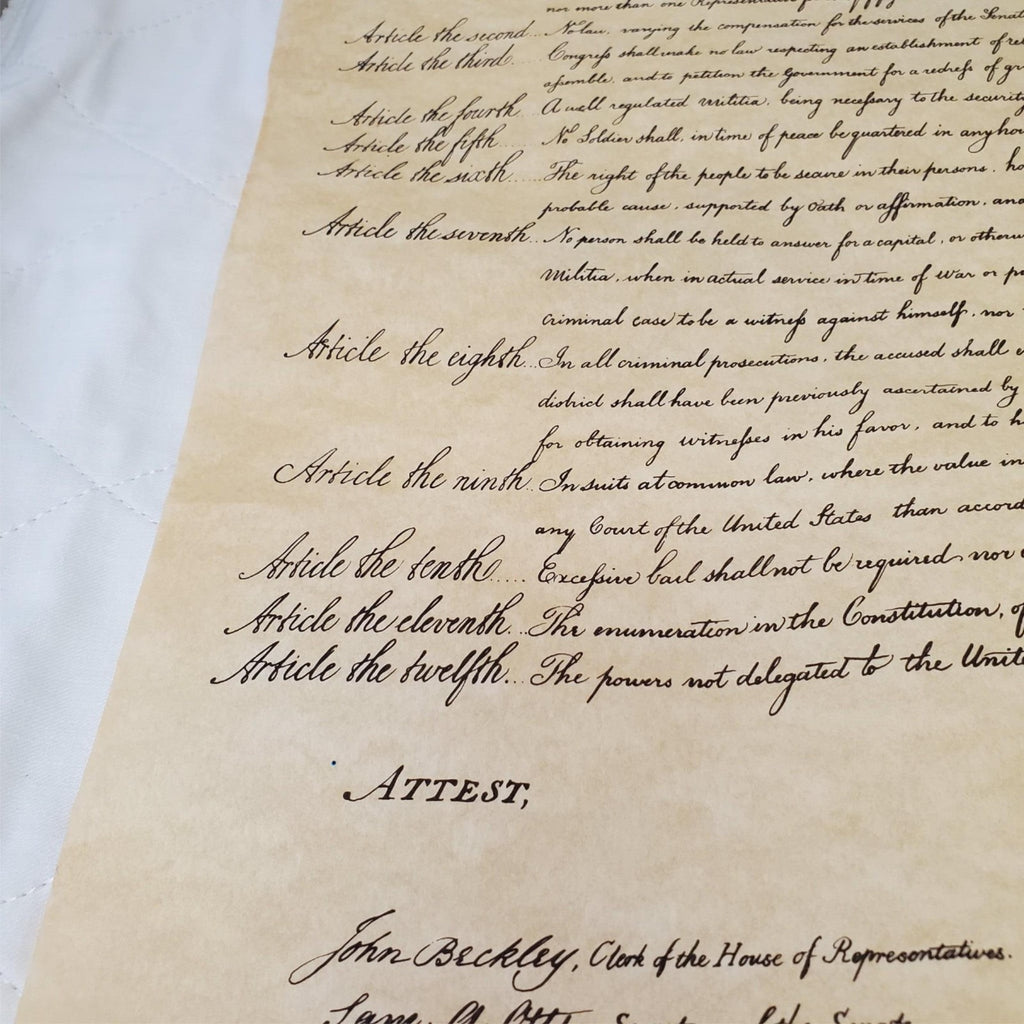 nor more than one Representative for
Article the second... No law, varying the compensation for the services of the Senat
Article the third... Congreſs shall make no law respecting an establishment of re
aſsemble, and to petition the Government for a redreſs of gr
Article the fourth... A well regulated militia, being neceſsary to the security
Article the fifth... No Soldier shall, in time of peace be quartered in any hou
Article the sixth..... The right of the people to be secure in their persons, ho
probable cause, supported by Oath or affirmation, and
Article the seventh.. No person shall be held to answer for a capital, or otherw
Militia, when in actual service in time of War or p
criminal case to be a witneſs against himself, nor
Article the eighth... In all criminal prosecutions, the accused shall e
district shall have been previously ascertained by
for obtaining witneſses in his favor, and to h
Article the ninth.. In suits at common law, where the value in
any Court of the United States than accord
Article the tenth..... Exceſsive bail shall not be required nor
Article the eleventh... The enumeration in the Constitution, of
Article the twelfth... The powers not delegated to the Unite
ATTEST,
John Beckley, Clerk of the House of Representatives.
Sam. A. Otis Secretary of the Senate